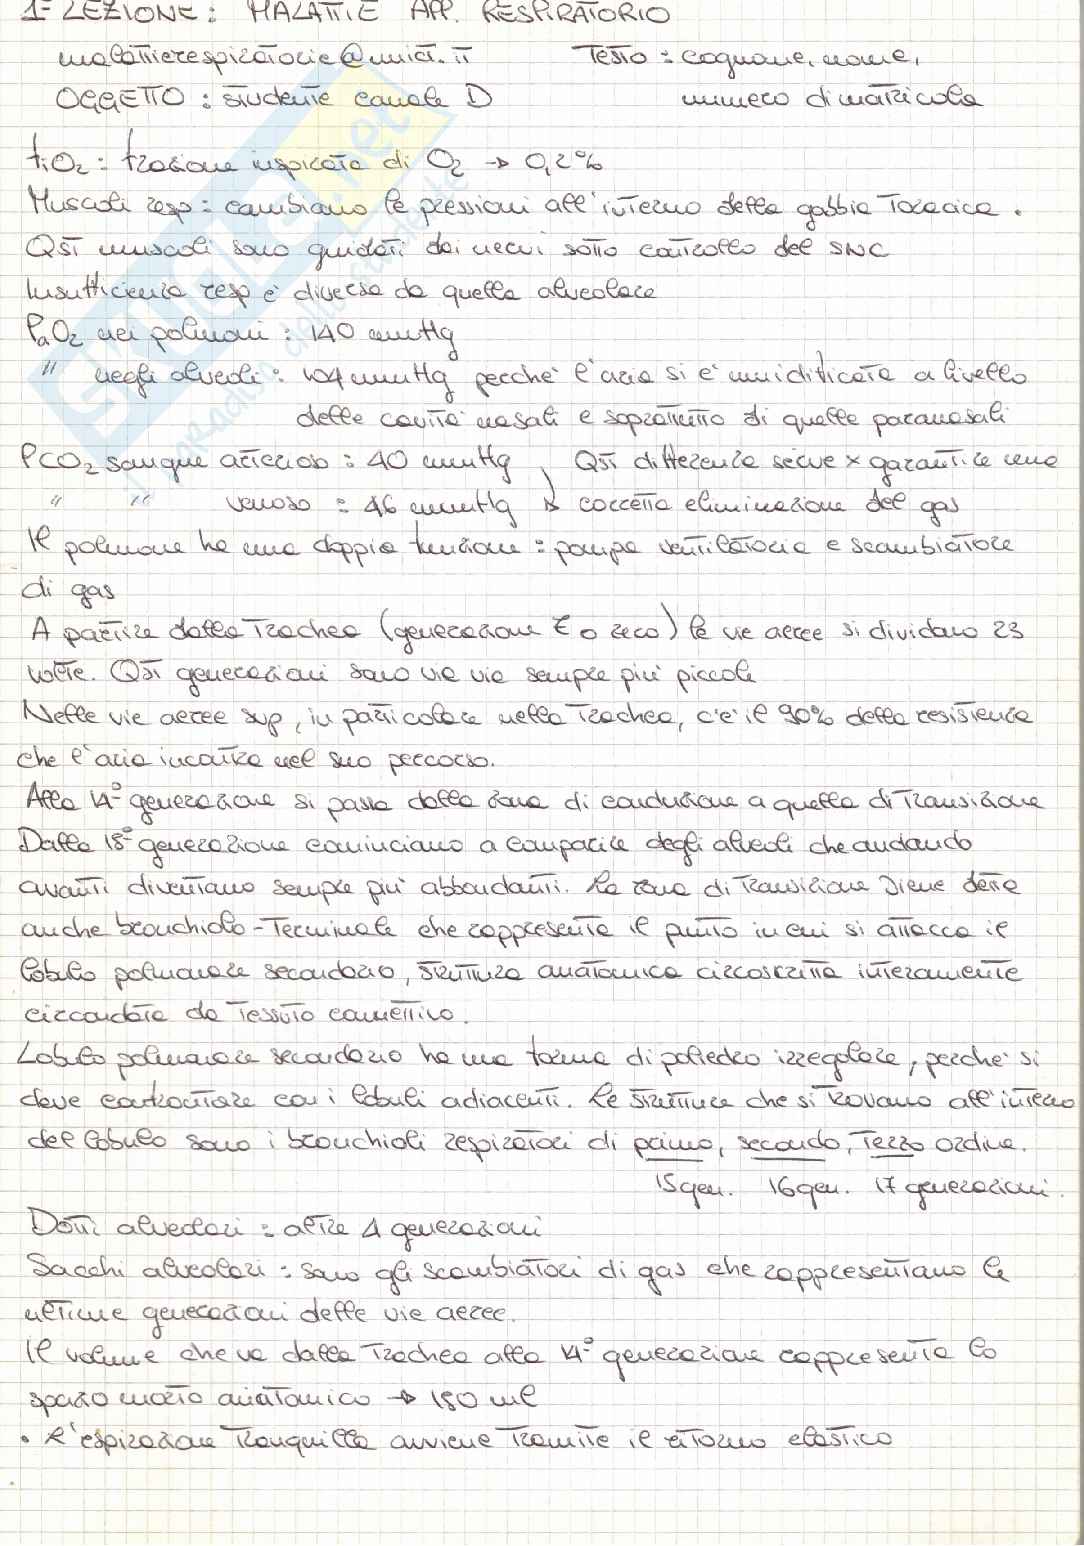 1ª LEZIONE: MALATTIE APP. RESPIRATORIO
malattierespiratorie@unict.it Testo: cognome, nome,
OGGETTO: studente canale D numero di matricola
fiO2: frazione inspirata di O2 → 0,2%
Muscoli resp: cambiano le pressioni all'interno della gabbia toracica.
Qsti muscoli sono guidati dai nervi sotto controllo del SNC
Insufficienza resp è diversa da quella alveolare
PaO2 nei polmoni: 140 mmHg
" negli alveoli: 104 mmHg perchè l'aria si è umidificata a livello
delle cavità nasali e soprattutto di quelle paranasali
PCO2 sangue arterioso: 40 mmHg Qsti differenza serve x garantire una
" " venoso: 46 mmHg → corretta eliminazione del gas
Il polmone ha una doppia funzione: pompa ventilatoria e scambiatore
di gas
A partire dalla trachea (generazione Z o zero) le vie aeree si dividono 23
volte. Qsti generazioni sono via via sempre più piccole
Nelle vie aeree sup, in particolare nella trachea, c'è il 90% della resistenza
che l'aria incontra nel suo percorso.
Alla 14° generazione si passa dalla zona di conduzione a quella di transizione
Dalla 18° generazione cominciano a comparire degli alveoli che andando
avanti diventano sempre più abbondanti. La zona di transizione viene detta
anche bronchiolo-terminale che rappresenta il punto in cui si attacca il
lobulo polmonare secondario, struttura anatomica circoscritta interamente
circondata da tessuto connettivo.
Lobulo polmonare secondario ha una forma di poliedro irregolare, perchè si
deve confrontare con i lobuli adiacenti. Le strutture che si trovano all'interno
del lobulo sono i bronchioli respiratori di primo, secondo, terzo ordine.
15gen. 16gen. 17 generazioni.
Dotti alveolari: altre 4 generazioni
Sacchi alveolari: sono gli scambiatori di gas che rappresentano le
ultime generazioni delle vie aeree.
Il volume che va dalla trachea alla 14° generazione rappresenta lo
spazio morto anatomico → 150 ml
• L'espirazione tranquilla avviene tramite il ritorno elastico
SKUOLA.net
il paradiso dello studente